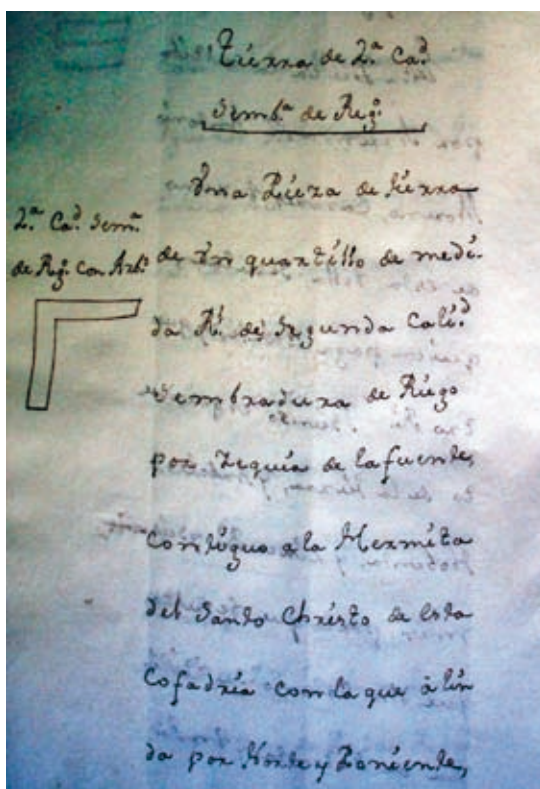 tierra de 2.ª Ca.d
Semb.ª de Reg.º
2.ª Ca.d Sem.ª
de Reg.º Con Arb.s
Vna Pieza de tierra
de Vn quartillo de medi-
da R.l de Segunda Calid.d
Sembradura de Riego
por Zequia de la fuente,
Contiguo a la Hermita
del Santo Christo de esta
Cofadria con la que à lin
da por Norte y Poniente,